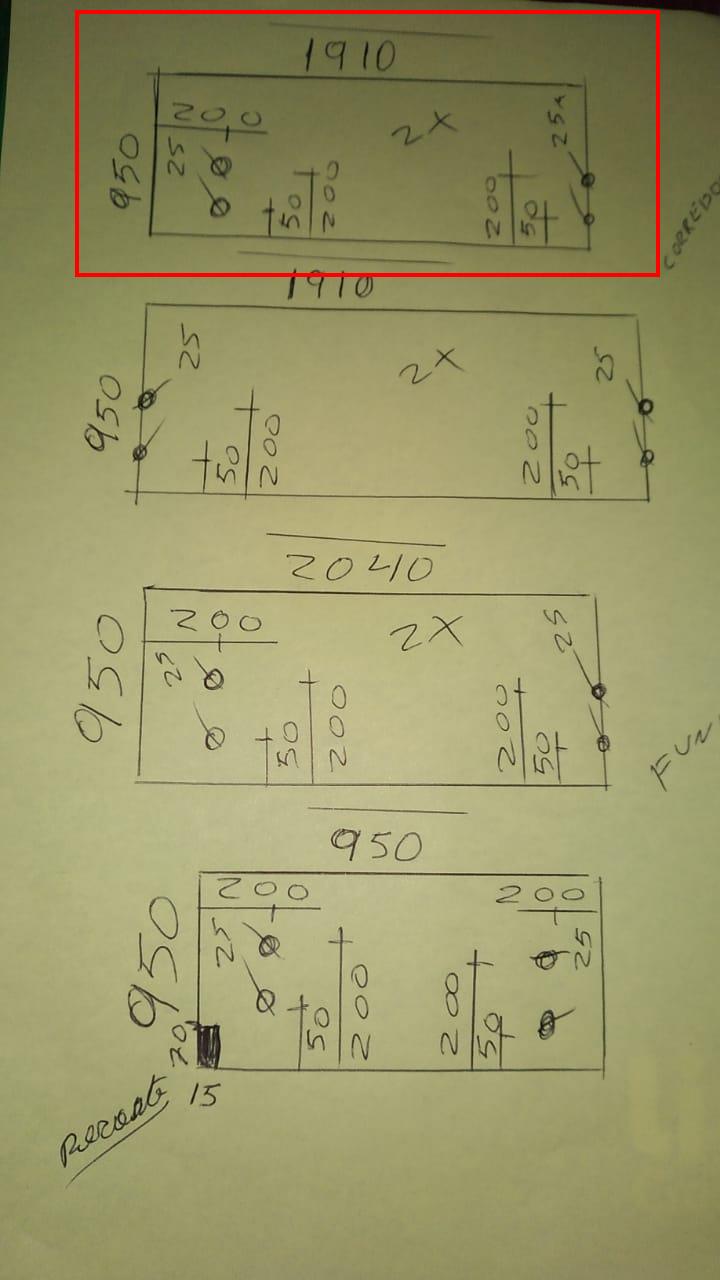 1910
950
200
25
50
200
2X
200
50
25x
CORREDO
1910
950
25
50
200
2X
200
50
25
2040
950
200
25
50
200
2X
200
50
25
FUN
950
950
200
25
50
200
200
50
200
25
70
15